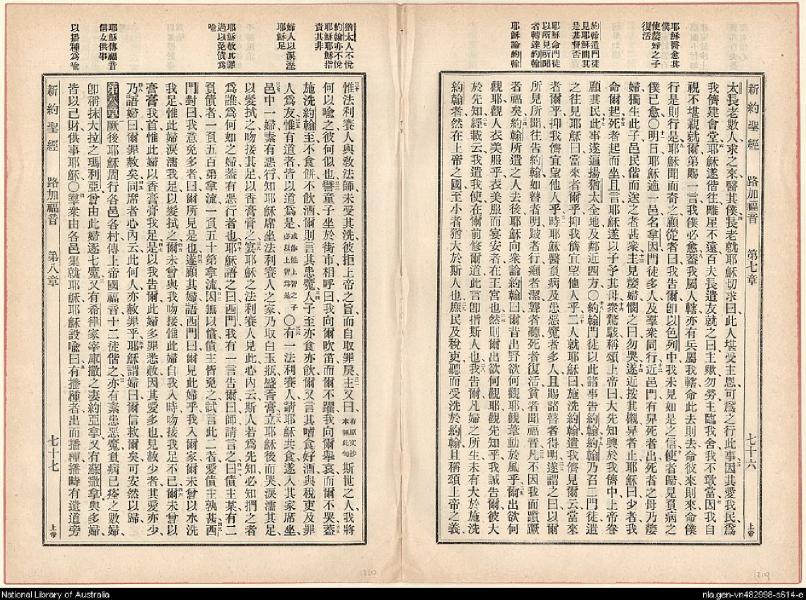 耶穌醫愈其僕
使嫠婦之子復活
約翰遣門徒見耶穌問其是基督否
耶穌命門徒以所見所聞者轉達約翰
耶穌論約翰
新約聖經 路加福音 第七章 七十六 上帝
太長老數人求之來醫其僕長老就耶穌切求曰此人堪受主恩可為之行此事因其愛我民為
我儕建會堂耶穌遂偕往離屋不遠百夫長遣友就之曰主歟勿勞主臨我舍我不敢當因我自
視不堪親就爾第賜一言我僕必愈蓋我屬人轄亦有兵屬我轄命此去則去命彼來則來命僕
行是則行是耶穌聞而奇之顧從者曰我告爾卽以色列中我未見如是之信使者歸見負病之
僕已愈〇明日耶穌適一邑名拿因門徒多人及羣衆同行近邑門有舁死者出死者之母乃嫠
婦獨生此子邑民偕而送之者甚衆主見嫠婦憫之曰勿哭遂近按其櫬舁者止耶穌曰少者我
命爾起死者起而坐且言耶穌遂以子予其母衆驚駭稱頌上帝曰大先知興於我儕中上帝眷
顧其民此事遂遍揚猶太全地及鄰近四方〇約翰門徒以此諸事告約翰約翰乃召二門徒遣
之往見耶穌曰當來者爾乎抑我儕宜望他人乎二人就耶穌曰施洗約翰遣我儕見爾云當來
者爾乎抑我儕宜望他人乎時耶穌醫負病及患惡鬼者多人且賜諸瞽者得明遂謂之曰以爾
所見所聞往告約翰如瞽者明跛者行癩者潔聾者聽死者復活貧者聞福音凡不因我而躓蹶
者福矣約翰所遣之人去後耶穌向衆論約翰曰爾昔出野欲何觀耶觀葦動於風乎爾出欲何
觀耶觀人衣美服乎衣美服而宴安者在王宮也然則爾出欲何觀耶觀先知乎我誠告爾彼大
於先知經載云我遣我使在爾前修爾道此言卽指斯人也我告爾凡婦之所生未有大於施洗
約翰者然在上帝之國至小者猶大於斯人也庶民及稅吏聽而受洗於約翰且稱頌上帝之義
猶太人不悅約翰亦不悅耶穌耶穌指責其非
婦人以淚溼耶穌足
耶穌赦其罪過以免債為喻
耶穌傳福音信女供事
以播種為喻
惟法利賽人與敎法師未受其洗彼拒上帝之旨而自取罪戾主又曰 斯世之人我將
何以喻之彼何似也譬童子坐於街市相呼曰我向爾吹笛而爾不躍我向爾舉哀而爾不哭蓋
施洗約翰至不食餅不飲酒爾則言其患鬼人子至亦食亦飲爾又言其嗜食好酒與稅吏及罪
人為友惟有道者皆以道為是 〇有一法利賽人請耶穌共食遂入其家席坐
邑中一婦素有惡行知耶穌席坐法利賽人之家乃取白玉瓶盛香膏立耶穌後而哭淚濡其足
以髮拭之吻接其足以香膏膏之宴耶穌之法利賽人見此心內云斯人若為先知必知捫之者
為誰為何如之婦蓋有惡行者也耶穌語之曰西門我有一言告爾曰師請言之曰債主某有二
負債者一負五百第拿流一負五十第拿流因無以償債主皆免之試言此二者愛債主孰甚西
門對曰我意免多者曰爾所見是也遂顧其婦語西門曰爾見此婦乎我入爾家爾未嘗以水洗
我足惟此婦淚濡我足以髮拭之爾未嘗與我吻接惟此婦自我入時吻接我足不已爾未嘗以
膏膏我首惟此婦以香膏膏我足是以我告爾此婦多罪悉赦因其愛多也見赦少者其愛亦少
乃語婦曰爾罪赦矣同席者心內云此何人亦赦罪乎耶穌謂婦曰爾信救爾矣可安然以歸
第八章 厥後耶穌周行各邑各村傳上帝國福音十二徒偕之亦有素患惡鬼負病已痊之數婦
卽稱抹大拉之瑪利亞曾由此婦逐七鬼又有希律家宰庫撒之妻約亞拿又有蘇撒拿與多婦
皆以己財供事耶穌〇羣衆由各邑集就耶穌耶穌設喻曰有播種者出而播種播時有遺道旁
新約聖經 路加福音 第八章 七十七 上帝
National Library of Australia
nla.gen-vn482998-s614-e